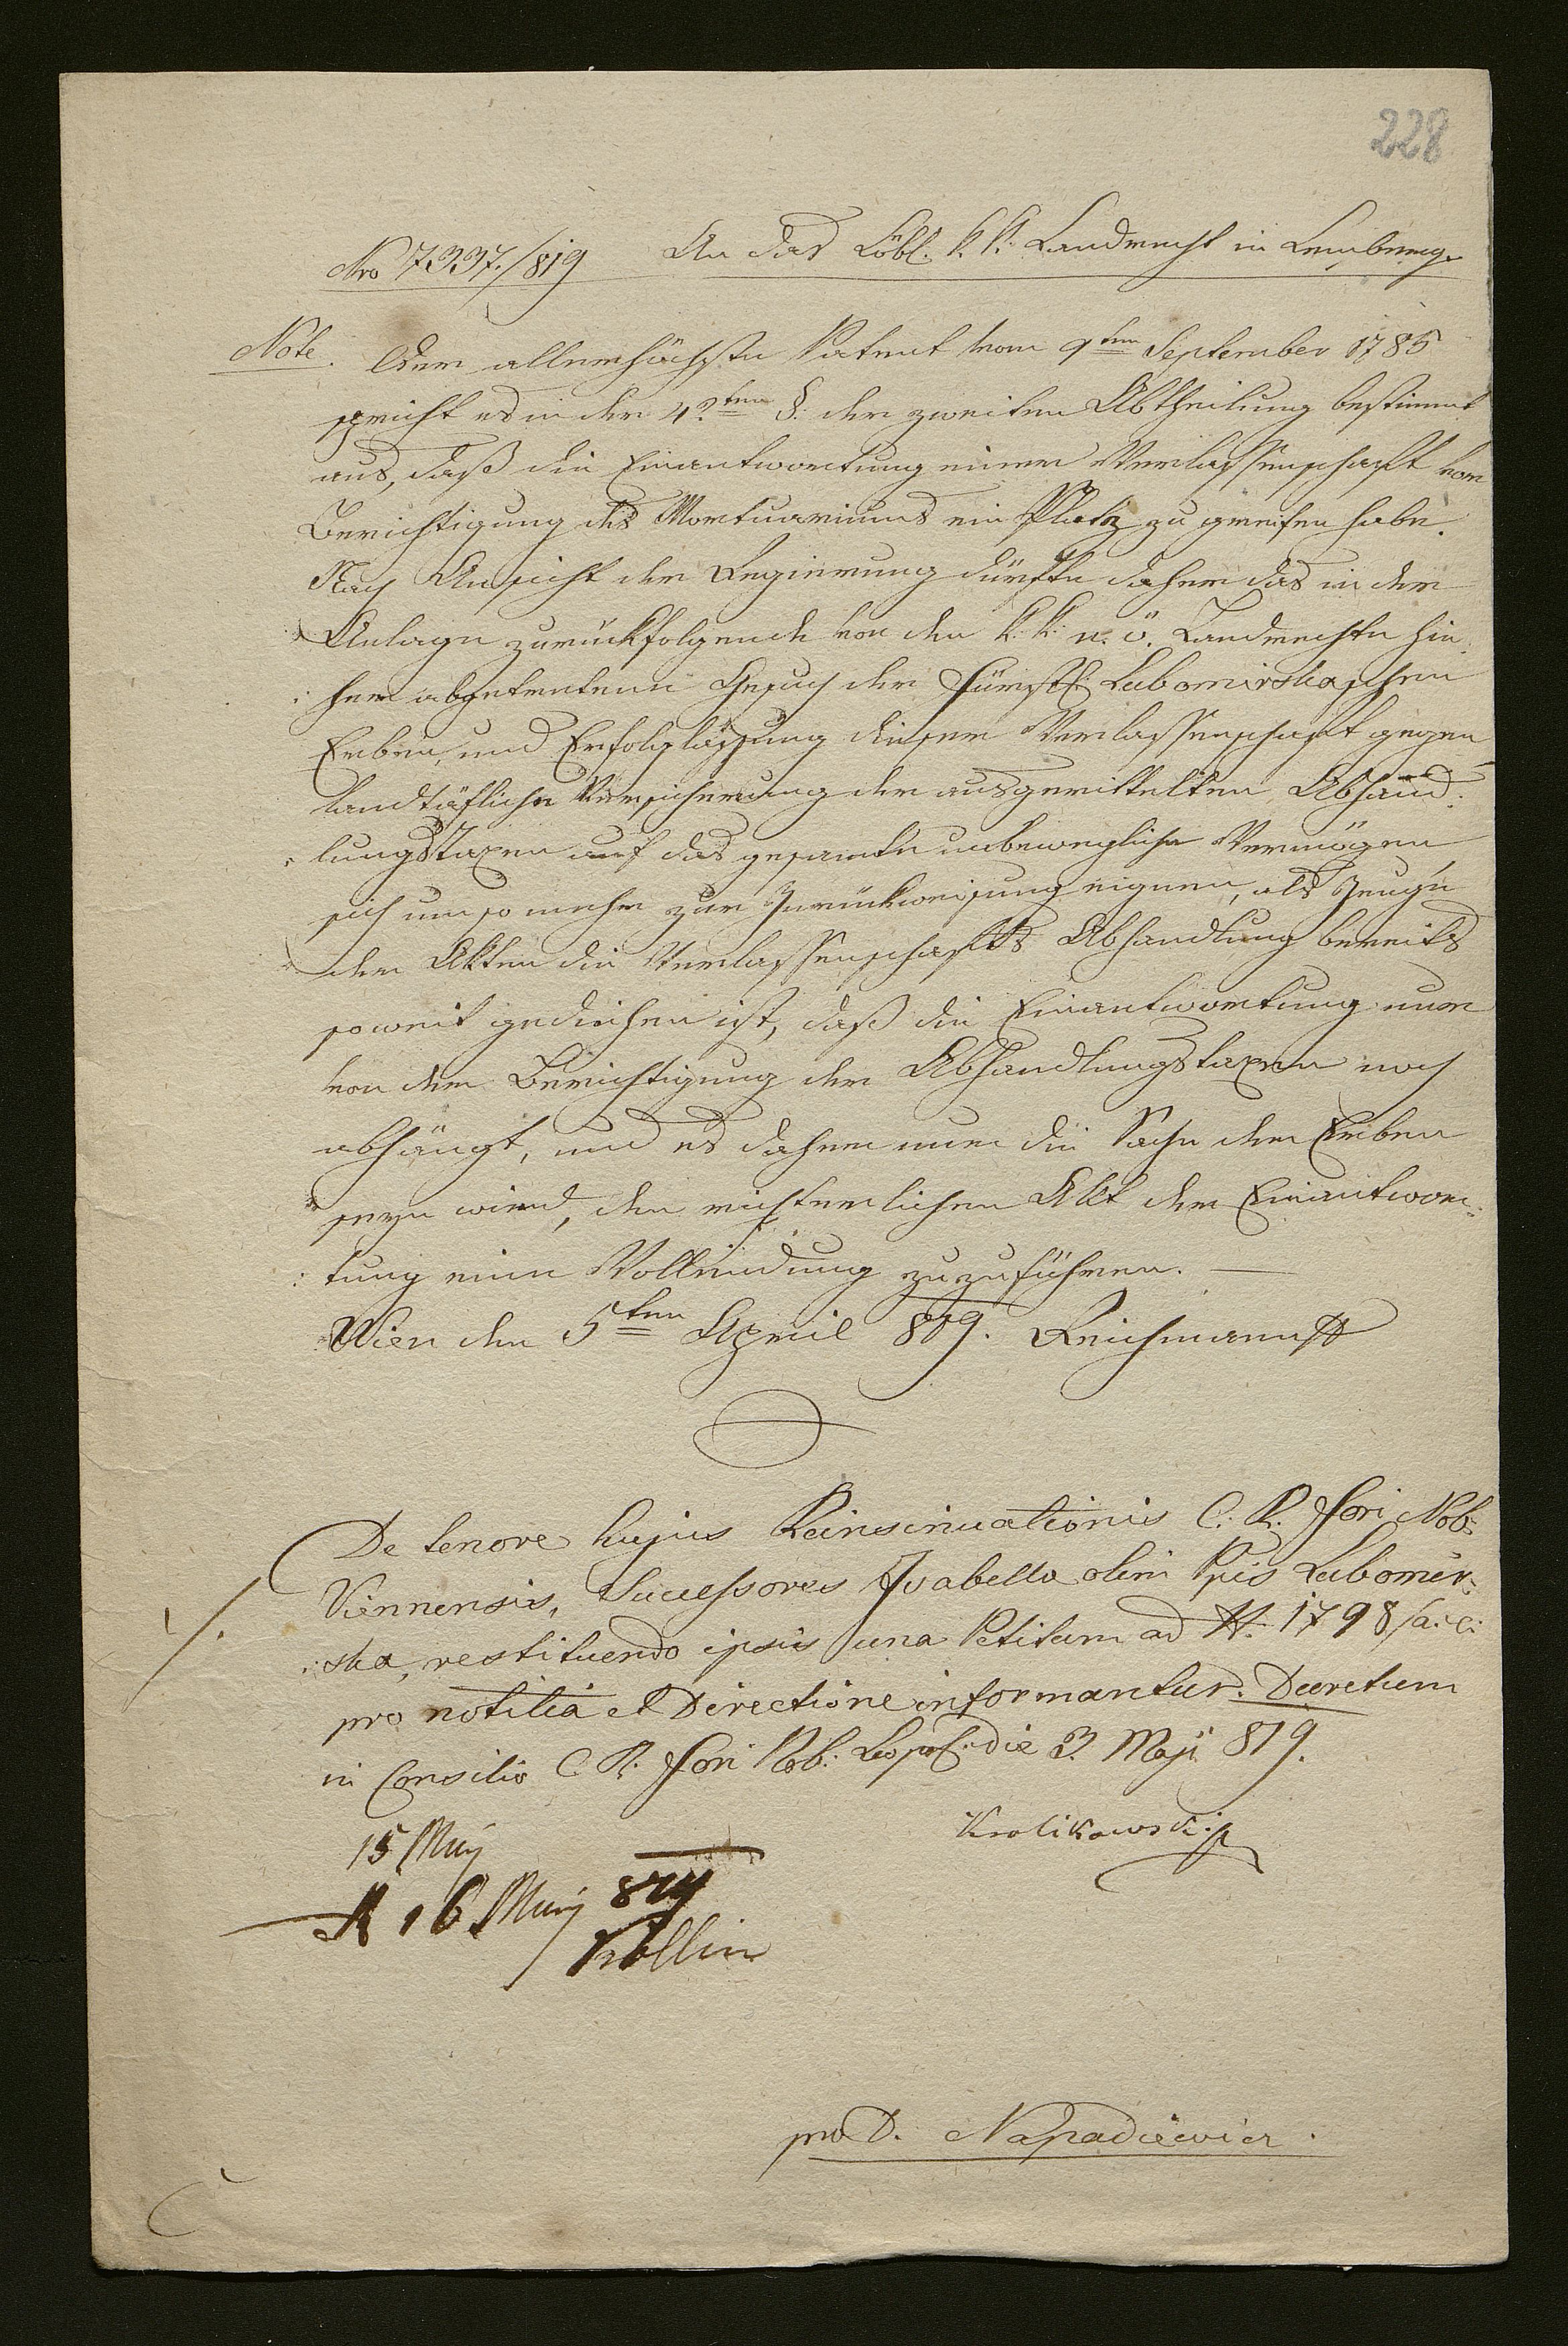 228
Nro 7337./819 An das Löbl. k. k. Landrecht in Lemberg.
Note. Der allerhöchste Patent vom 9ten September 1785
spricht es in der 42ten §. der zweiten Abtheilung bestimmt
aus, daß die Einantwortung einer Verlassenschaft vor
Berichtigung des Mortuariums nie Platz zu greifen habe.
Nach Ansicht der Regierung dürfte daher das in der
Anlage zurückfolgende von den k. k. n. ö. Landrechte hie-
: her abgetretene Gesuch der Fürstl. Lubomirskaschen
Erben, um Erfolglassung dieser Verlassenschaft gegen
landtäfliche Versicherung der ausgemittelten Abhand:
: lungstaxen auf das gesamte unbewegliche Vermögen
sich um so mehr zur Zurückweisung eignen, als Zeug'n
der Akten die Verlassenschafts Abhandlung bereits
soweit gediehen ist, daß die Einantwortung nur
von der Berichtigung der Abhandlungstaxen noch
abhängt, und es daher nur die Sache der Erben
seyn wird, den richterlichen Akt der Einantwor:
: tung einer Vollendung zuzuführen. —
Wien den 5ten April 819. Reichmann
De tenore hujus Reinsinuationis C. R. Fori Nob:
Viennensis, Successores Isabella olim Ppis Lubomir:
: ska, restituendo ipsis una Petitum ad N. 1798/a: c:
pro notitia et Directione informantur. Decretum
in Consilio C. R. Fori Nob: Leopol: die 3. Maji 819.
Krolikowski
15 Maij
16 Maij 819
Köllin
pro D. Napadiewicz.